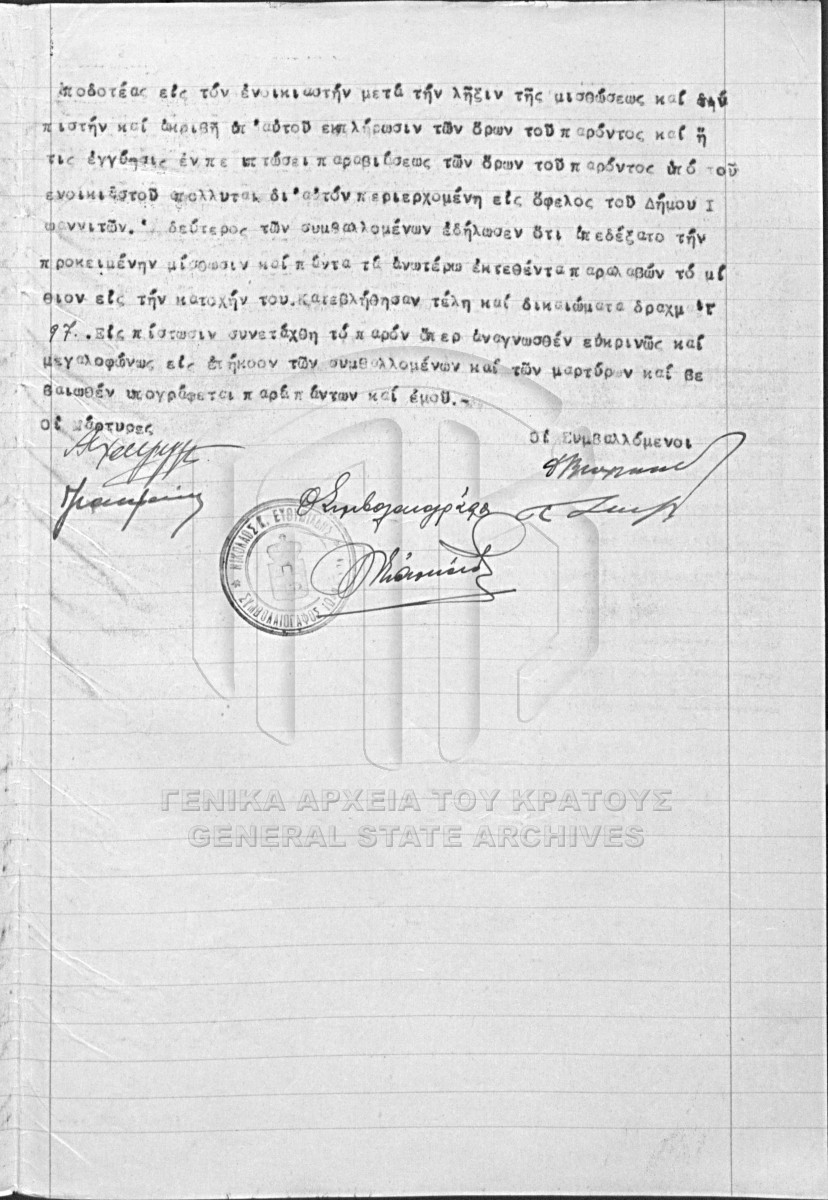 ἀποδοτέας εἰς τόν ἐνοικιαστήν μετά τήν λῆξιν τῆς μισθώσεως καί τήν
πιστήν καί ἀκριβῆ ὑπ'αὐτοῦ εκπλήρωσιν τῶν ὅρων τοῦ παρόντος καί ἥ
τις ἐγγύησις ἐν πε ιπτώσει παραβιάσεως τῶν ὅρων τοῦ παρόντος ὑπό τοῦ
ενοικιαστοῦ ἀπολλυται δι'αὐτόν περιερχομένη εἰς ὄφελος τοῦ Δήμου Ι
ωαννιτῶν. δεύτερος τῶν συμβαλλομένων ἐδήλωσεν ὅτι ἀπεδέξατο τήν
προκειμένην μίσθωσιν καί πάντα τά ἀνωτέρω ἐκτεθέντα παραλαβών τό μί
θιον εἰς τήν κατοχήν του. Κατεβλήθησαν τέλη καί δικαιώματα δραχμ
97.. Εἰς πίστωσιν συνετάχθη τό παρόν ὅπερ ἀναγνωσθέν εὐκρινῶς καί
μεγαλοφώνως εἰς ἐπήκοον τῶν συμβαλλομένων καί τῶν μαρτύρων καί βε
βαιωθέν υπογράφεται παρά πάντων καί ἐμοῦ.-
Οἱ Μάρτυρες
Οἱ Συμβαλλόμενοι
Ὁ Συμβολαιογράφος
ΝΙΚΟΛΑΟΣ Κ. ΕΥΘΥΜΙΑΔΗΣ
ΣΥΜΒΟΛΑΙΟΓΑΦΟΣ ΙΩ
ΓΕΝΙΚΑ ΑΡΧΕΙΑ ΤΟΥ ΚΡΑΤΟΥΣ
GENERAL STATE ARCHIVES